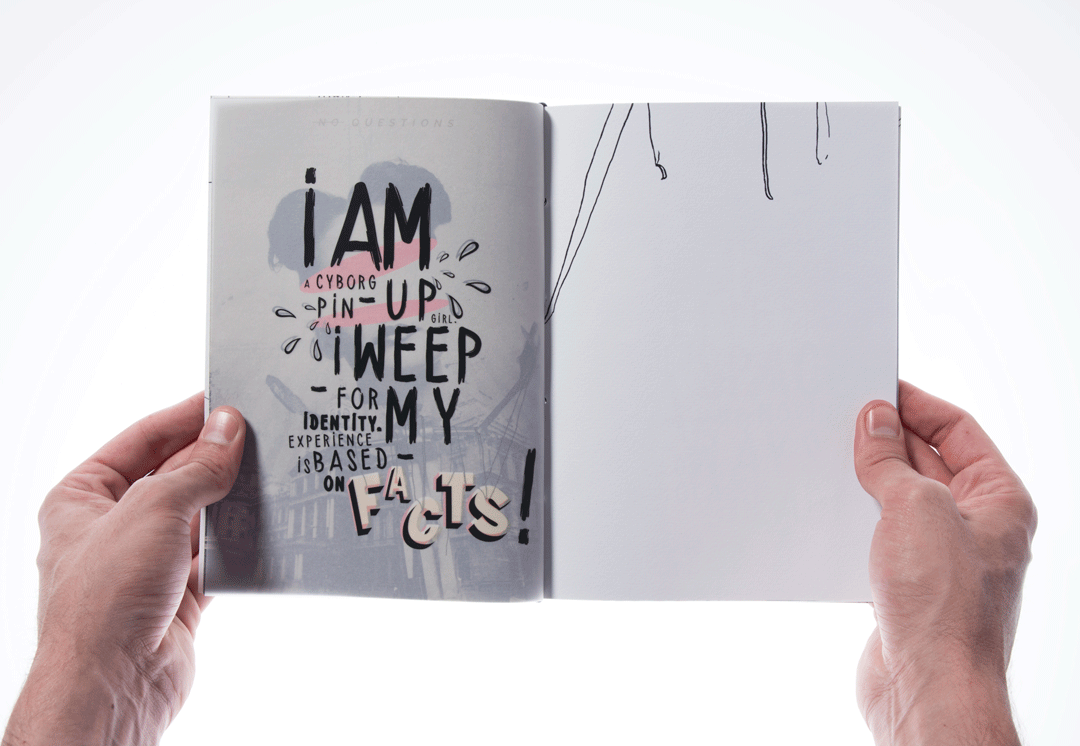 NO QUESTIONS
i AM
A CYBORG
PiN-UP
GIRL.
i WEEP
- FOR MY
IDENTITY.
EXPERiENCE
iS BASED -
ON FACTS!